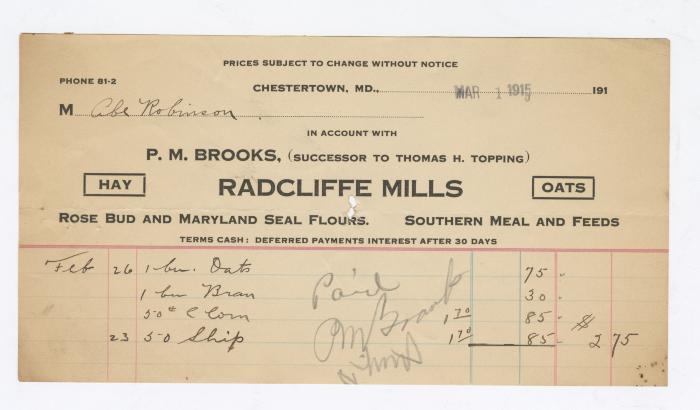 PRICES SUBJECT TO CHANGE WITHOUT NOTICE
PHONE 81-2
CHESTERTOWN, MD., MAR 1 1915 191
M Abe Robinson
IN ACCOUNT WITH
P. M. BROOKS, (SUCCESSOR TO THOMAS H. TOPPING)
HAY RADCLIFFE MILLS OATS
ROSE BUD AND MARYLAND SEAL FLOURS. SOUTHERN MEAL AND FEEDS
TERMS CASH: DEFERRED PAYMENTS INTEREST AFTER 30 DAYS
Feb 26 1 bu. Oats 75
1 bu Bran 30
50# C Corn 1 70 85
23 50 Ship 1 70 85 $ 2 75
Paid
PM